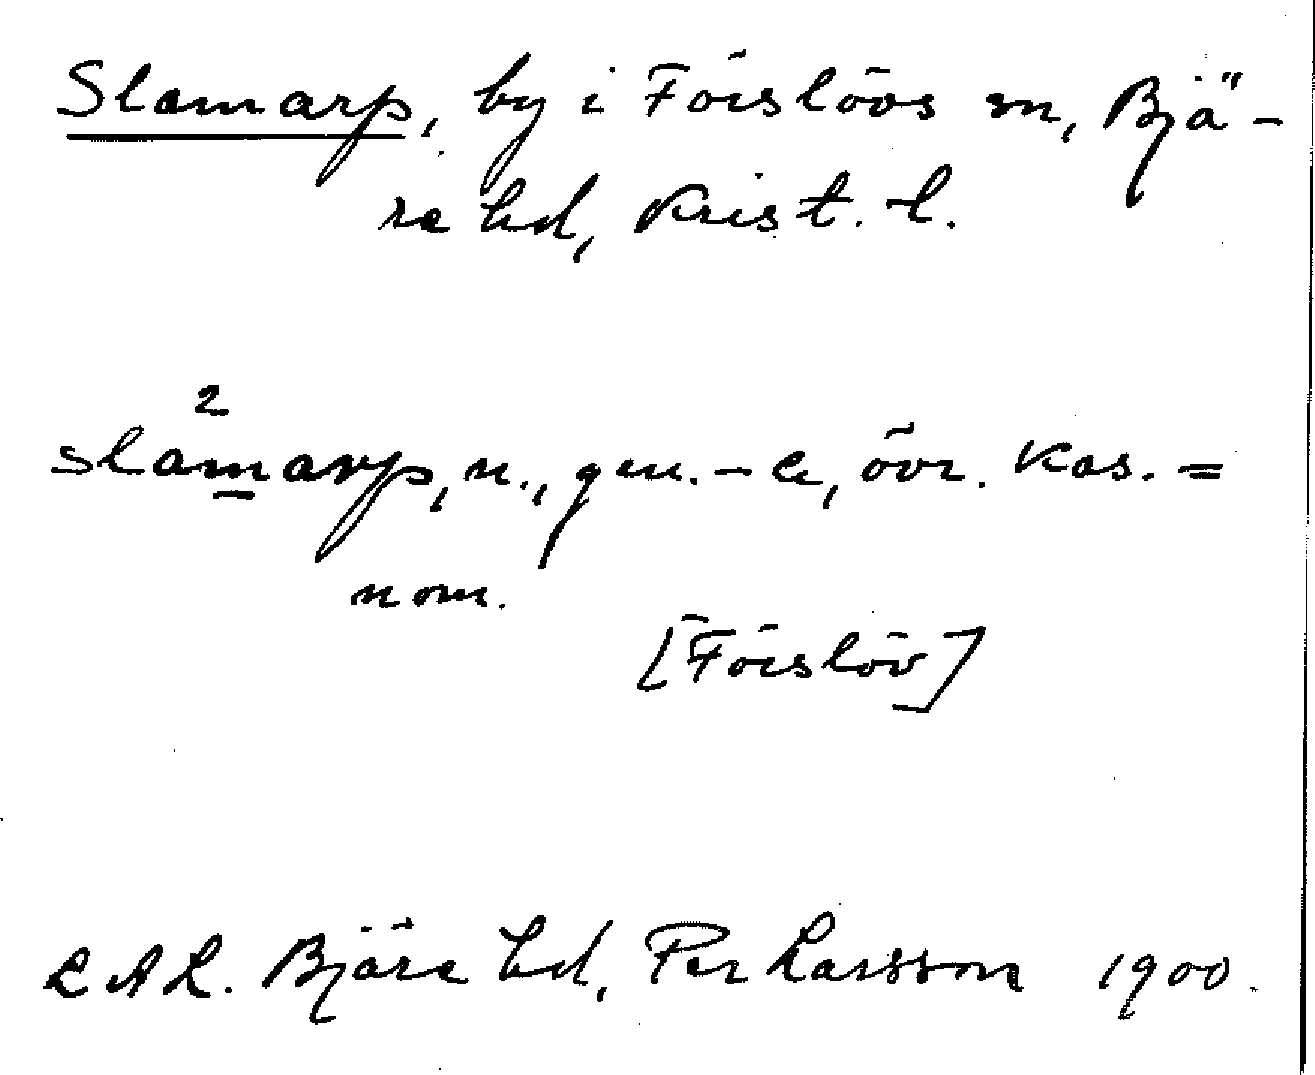 Slamarp, by i Förslövs sn, Bjä-
re hd, Krist. l.
2
slamarp, n., gen. - e, övr. kas. =
nom.
[Förslöv]
LAL. Bjäre hd, Per Larsson 1900.